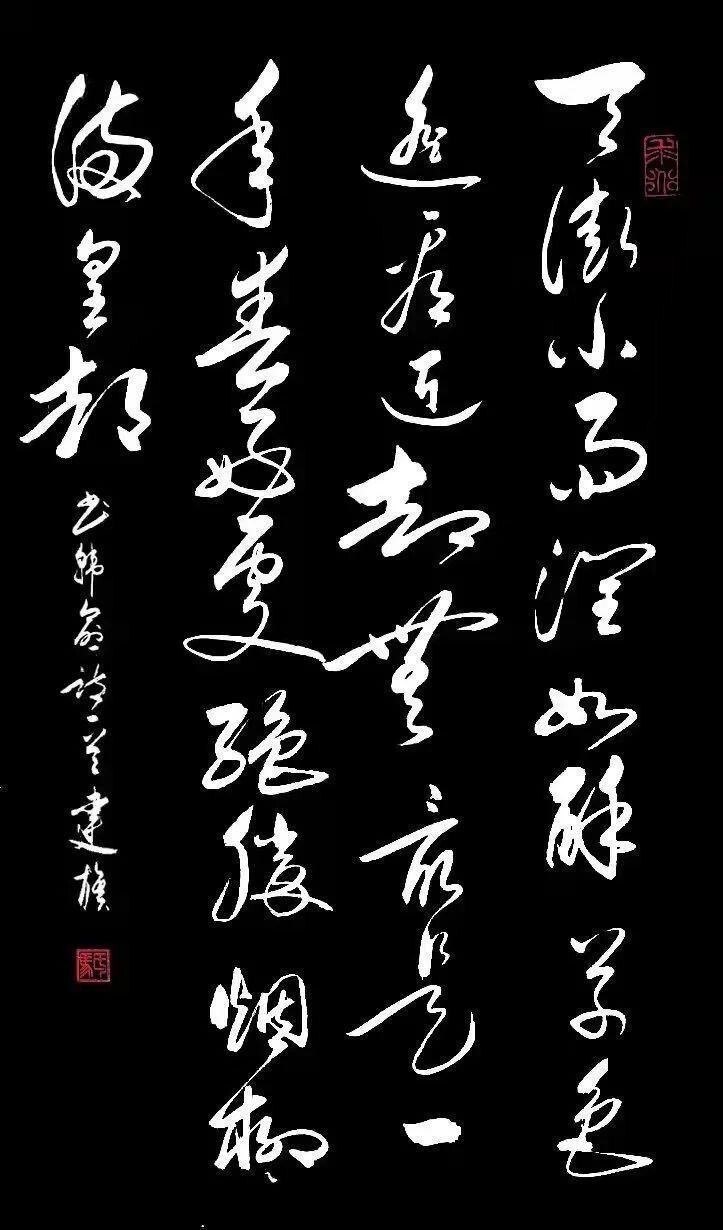 天街小雨润如酥草色
遥看近却无最是一
年春好处绝胜烟柳
满皇都
书韩愈诗一首建族